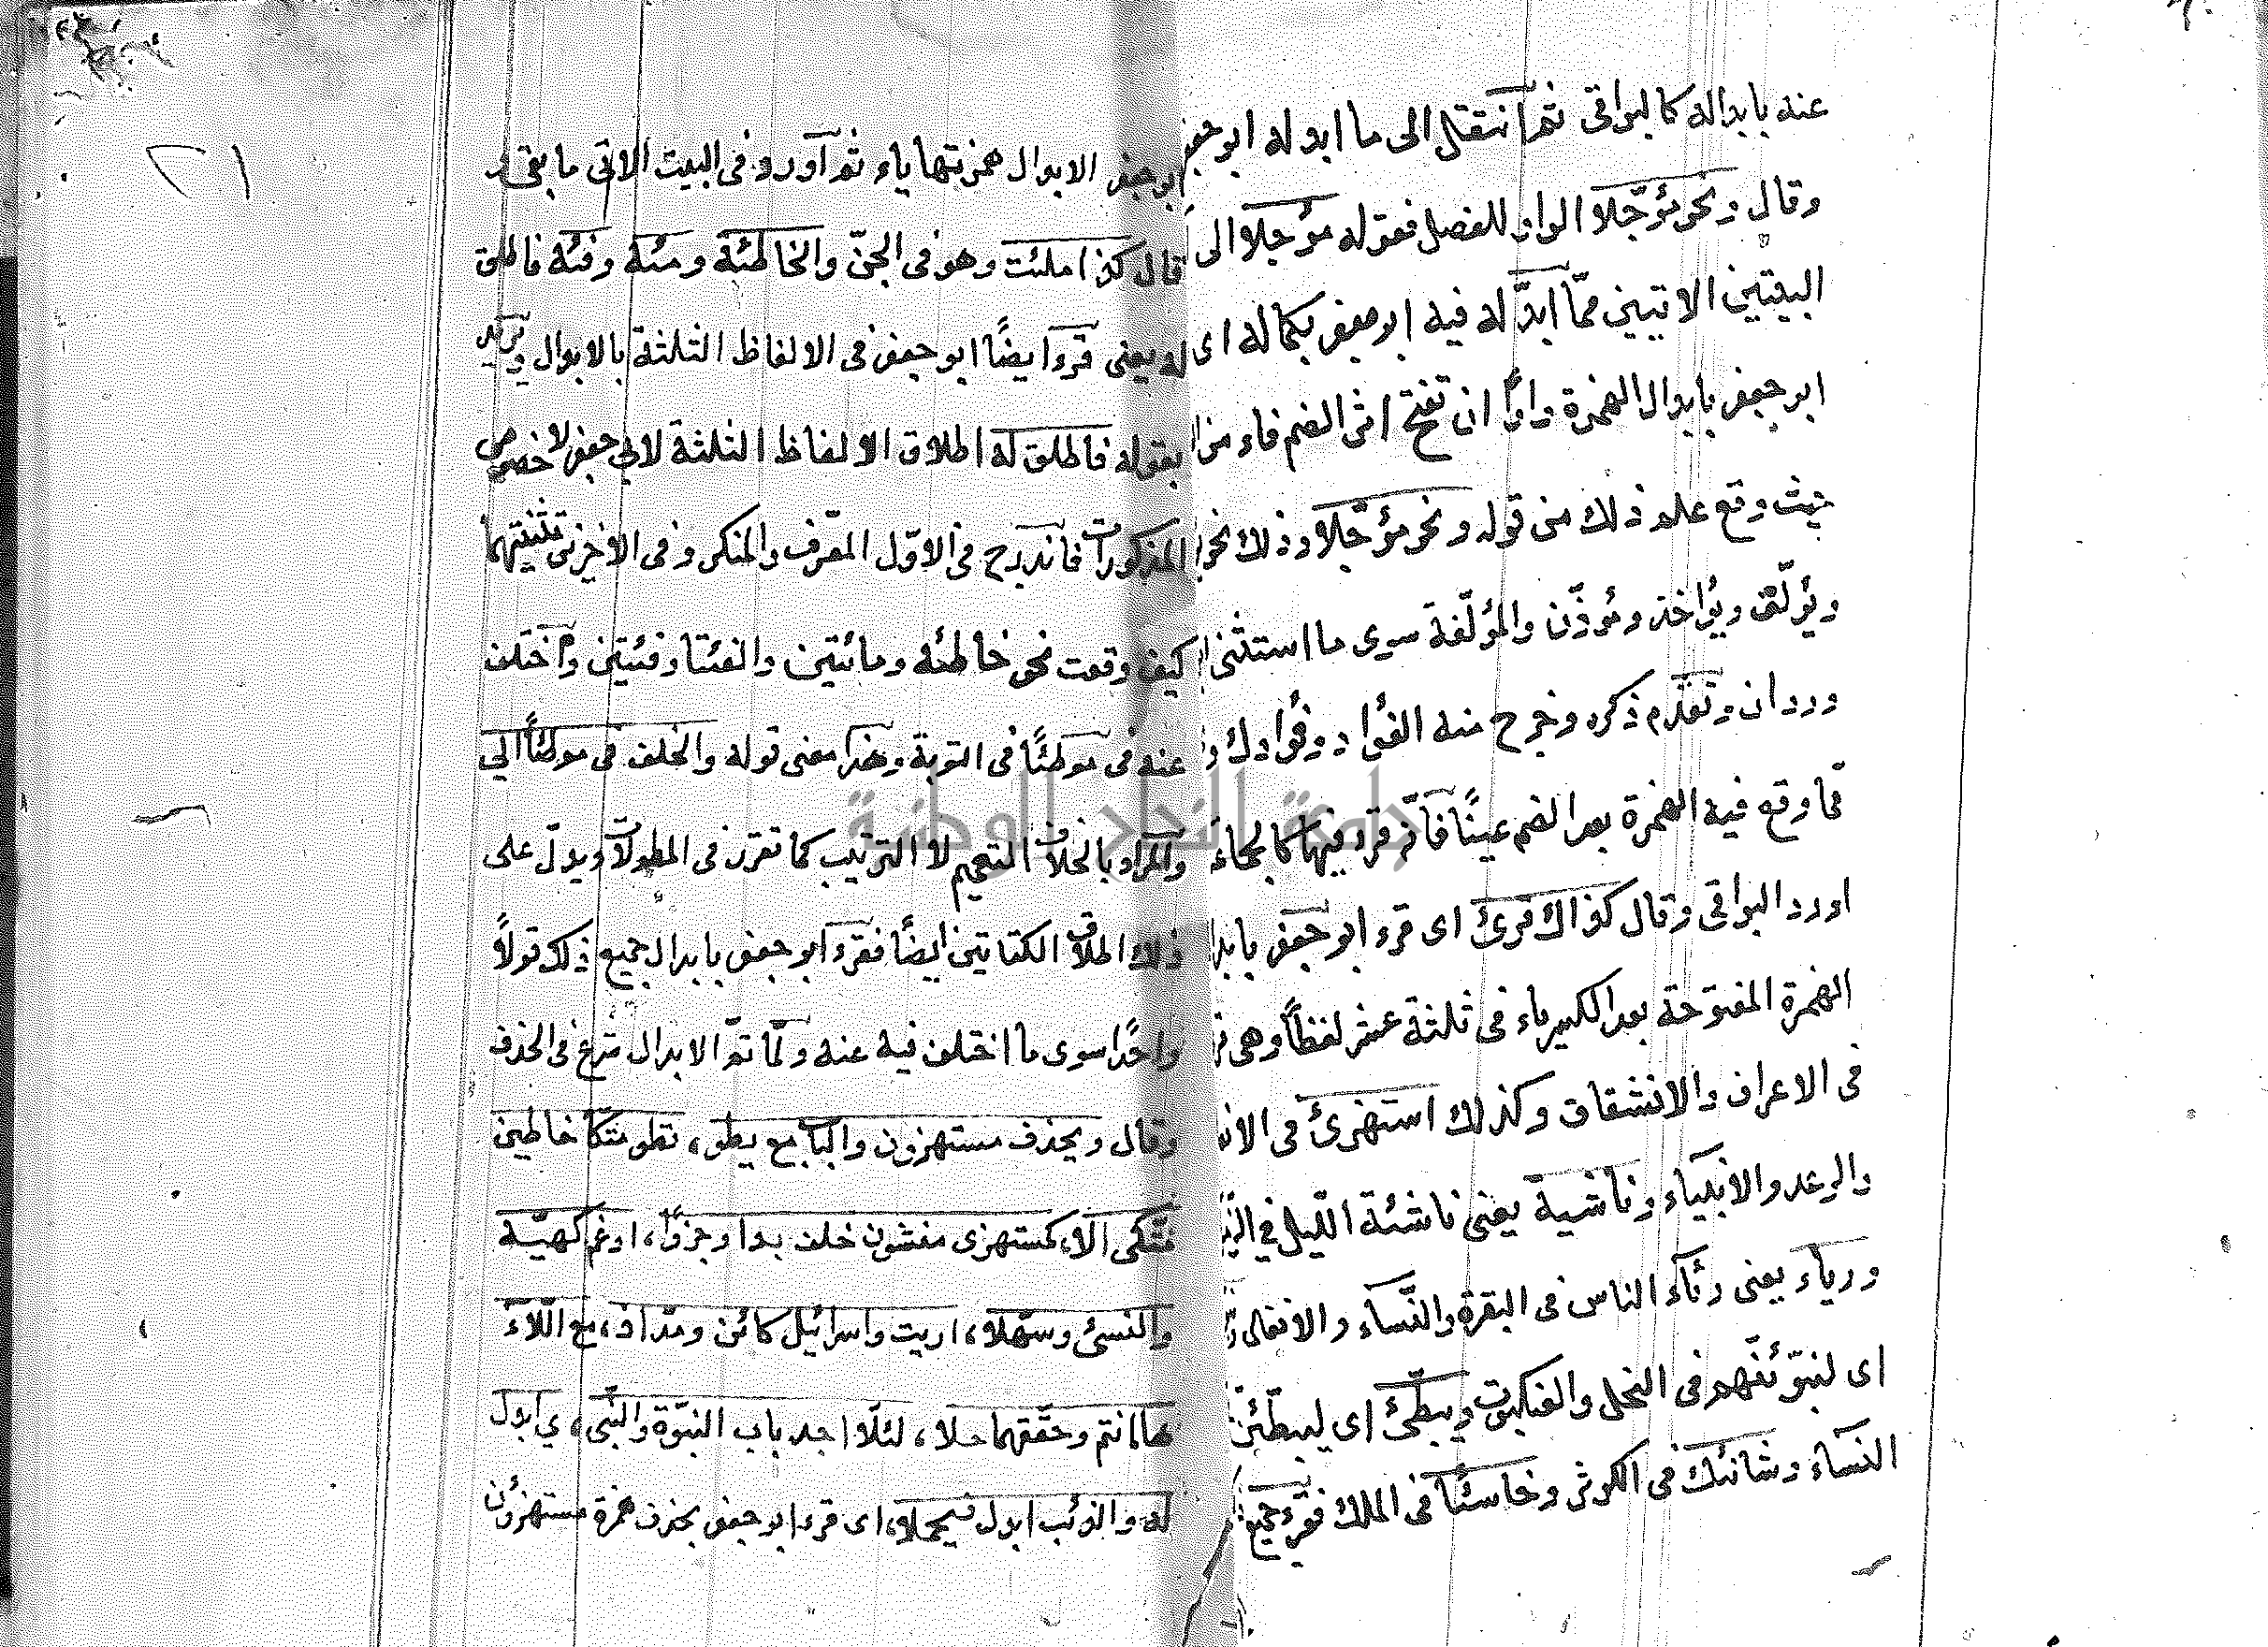 عنه بابداله كالبواقى ثم انتقل الى ما ابدله ابو جعفر
وقال ونحو مؤجّلا الواو للفصل فقوله مؤجلا الى
البيتين الاتيين ممّا ابدّله فيه ابو جعفر بكماله اى
ابو جعفر بابدال الهمزة واوًا ان تفتح اثر الضم فاء من
حيث وقع علم ذلك من قوله ونحو مؤجّلا وذلك نحو
ويؤلّف ويؤاخذ ومؤذّن والمؤلّفة سوى ما استثنى
وردان وتقدّم ذكره وخرج منه الفؤاد وفؤادك
فما وقع فيه الهمزة بعد الضم عينًا فانّه قرء فيها كالجماعة
اورد البواقى وقال كذاك قرئ اى قرء ابو جعفر بابدال
الهمزة المفتوحة بعد الكسر ياء فى ثلثة عشر لفظًا وهى
فى الاعراف والانشقاق وكذلك استهزئ فى الان
والرعد والانبياء وناشية يعنى ناشئة الليل فى
ورياء يعنى رئآء الناس فى البقرة والنّساء والانفال
اى لنبوّئنّهم فى النحل والعنكبوت ويبطّئ اى ليبطّئنّ
النسآء وشانئك فى الكوثر وخاسئًا فى الملك فقرء جميع
ابو جعفر الابدال همزتها ياء ثم اورد فى البيت الاتى ما بقى
قال كذا ملئت وهو فى الجنّ والخاطئة ومئة وفئة فاطلق
له يعنى قرء ايضًا ابو جعفر فى الالفاظ الثلثة بالابدال ويريد
بقوله فاطلق له اطلاق الالفاظ الثلثة لابى جعفر لا خصوص
المذكورات فاندرج فى الاوّل المعّرف والمنكر وفى الاخرين تثنيتهما
كيف وقعت نحو خاطئة ومائتين والفئتا وفئتين واختلف
عنه فى موطئًا فى التوبة وهذا معنى قوله والخلف فى موطئًا الى
والمراد بالخلاف التعميم لا الترتيب كما تقرّر فى المطولات ويدلّ على
ذلك اطلاق الكتابين ايضًا فقرء ابو جعفر بابدال جميع ذلك قولاً
واحدًا سوى ما اختلف فيه عنه ولمّا تمّ الابدال شرع فى الحذف
وقال ويحذف مستهزون والباب مع يطو، تطو متكا خاطين
متّكى الاء كمستهزى منشون خلف بدا وجزوًا، ادغم كهيّة
والنسئ وسهّلا، اريت واسرائيل كائن ومدّاف، مع اللّاء
هاانتم وحقّقهما حلا، لئلّا اجد باب النبوّة والنّبى، ى ابدل
له والذئب ابدل فيجملا، اى قرء ابو جعفر بحذف همزة مستهزؤن
جامعة النجاح الوطنية